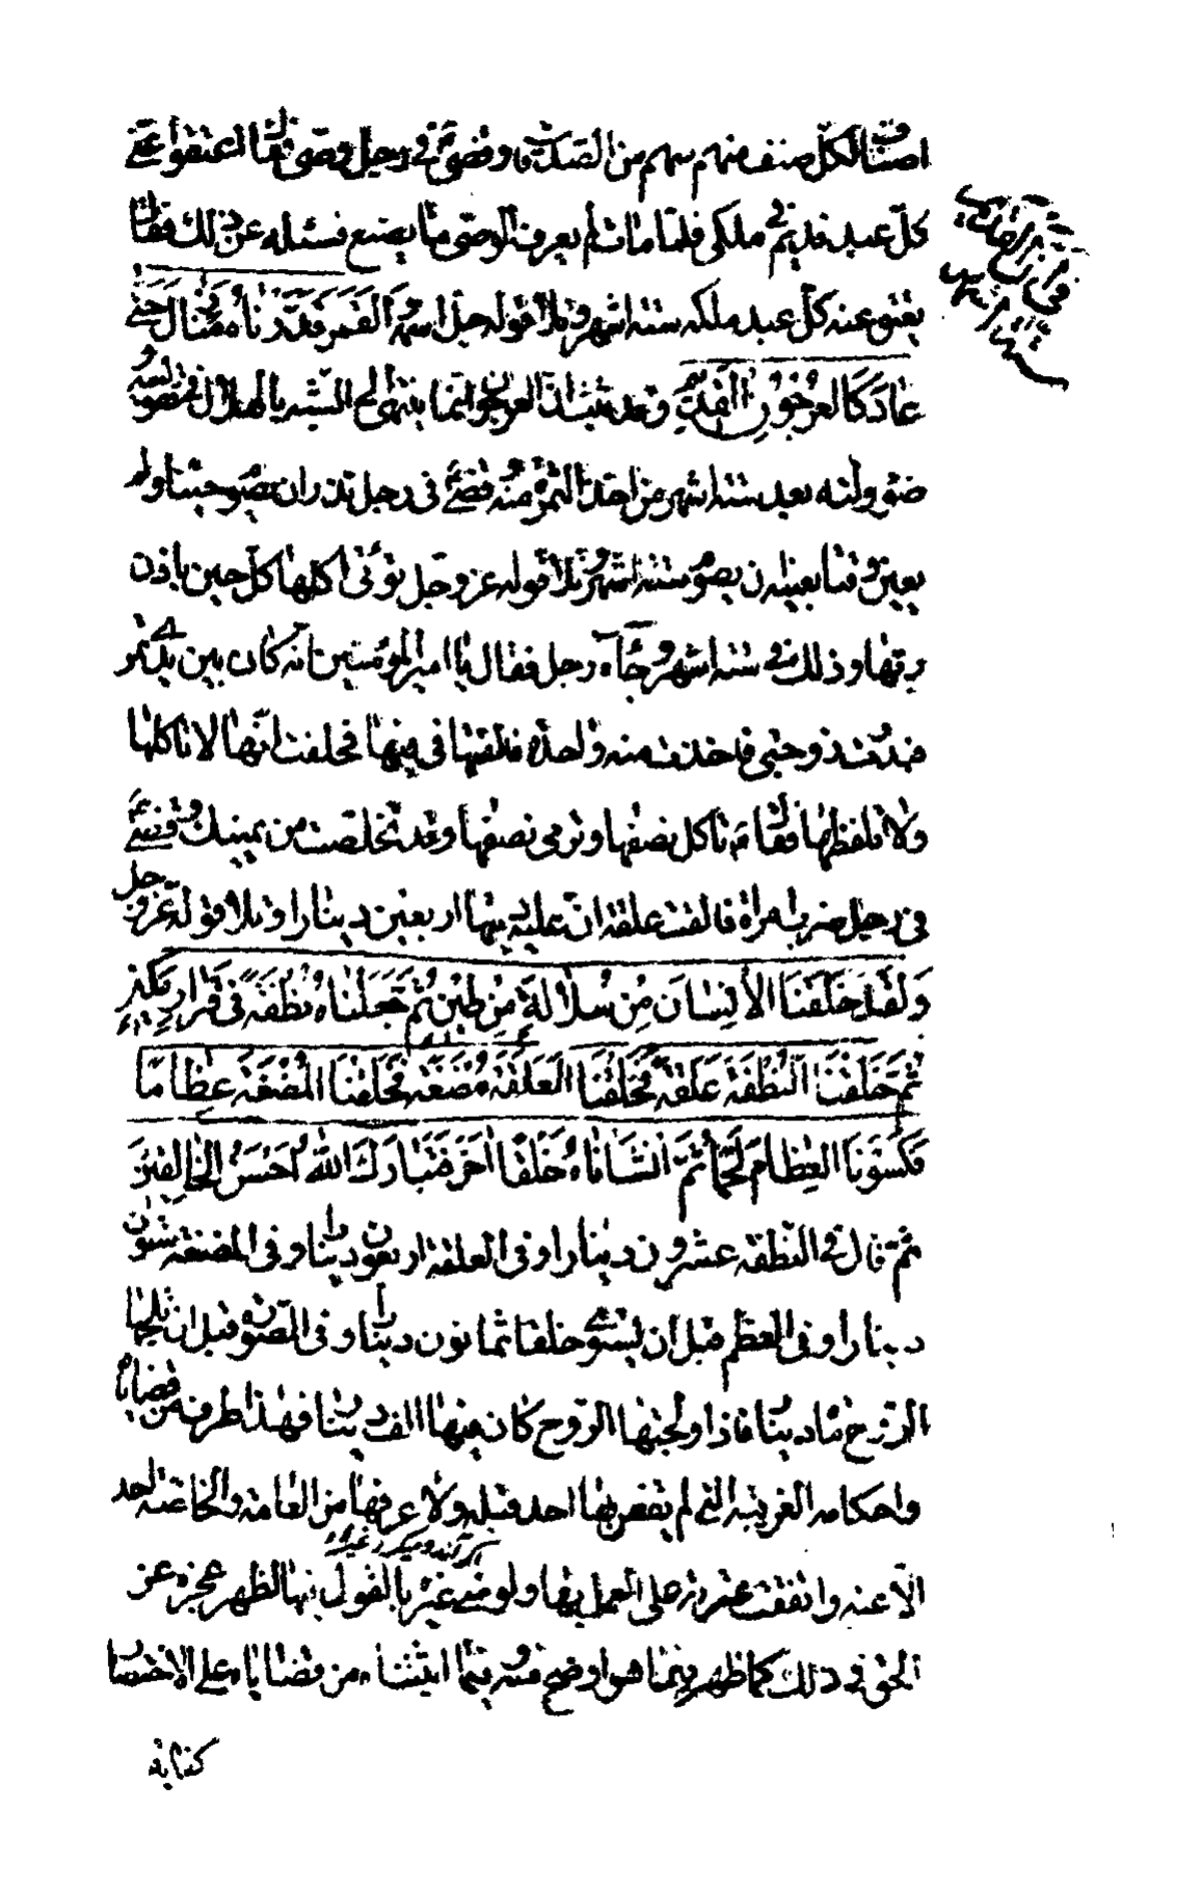 اصناف لكلّ صنف منهم سهم من الصدقات وقضى ع في رجل وصّى فقال اعتقوا عنّي
كلّ عبد قديم في ملكي فلمّا مات لم يعرف الوصّى ما يصنع فسئله عن ذلك فقال
يعتق عنه كلّ عبد ملكه ستة اشهر وتلا قوله جلّ اسمه وَالْقَمَرَ قَدَّرْنَاهُ مَنَازِلَ حَتّىٰ
عَادَ كَالْعُرْجُونِ الْقَدِيمِ وقد ثبت انّ العرجون انّما ينتهى الى الشبه بالهلال في تقوّسه
ضؤولته بعد ستة اشهر من اخذ الثمرة منه وقضى ع في رجل نذر ان يصوم حينا ولم
يعيّن وقتا بعينه ان يصوم ستة اشهر وتلا قوله عز وجل تؤتى اكلها كلّ حين باذن
ربّها وذلك في ستة اشهر وجآءه رجل فقال يا امير المؤمنين انّه كان بين يدي تمر
فبدرت زوجتى فاخذت منه واحدة فالقتها في فيها فحلفت انّها لا تاكلها
ولا تلفظها فقال ع تاكل نصفها وترمى نصفها وقد تخلّصت من يمينك وقضى ع
في رجل ضرب امراة فالقت علقة انّ عليه ديتها اربعين دينارا وتلا قوله عزّ وجل
وَلَقَدْ خَلَقْنَا الْاِنْسَانَ مِنْ سُلَالَةٍ مِنْ طِينٍ ثُمَّ جَعَلْنَاهُ نُطْفَةً فِى قَرَارٍ مَكِينٍ
ثُمَّ خَلَقْنَا النُّطْفَةَ عَلَقَةً فَخَلَقْنَا الْعَلَقَةَ مُضْغَةً فَخَلَقْنَا الْمُضْغَةَ عِظَامًا
فَكَسَوْنَا الْعِظَامَ لَحْمًا ثُمَّ اَنْشَأْنَاهُ خَلْقًا آخَرَ فَتَبَارَكَ اللهُ اَحْسَنُ الْخَالِقِينَ
ثم قال في النطفة عشرون دينارا وفى العلقة اربعون دينارا وفى المضغة ستّون
دينارا وفى العظم قبل ان يستوي خلقا ثمانون دينارا وفى الصورة قبل ان تلجها
الروح مائة دينار فاذا ولجتها الروح كان فيها الف دينار فهذا طرف من قضاياه
واحكامه الغريبة التي لم يقض بها احد قبله ولا عرفها من العامة والخاصّة احد
الّا عنه واتفقت عترته على العمل بها ولو منى غيره بالقول فيها لظهر عجزه عن
الحق في ذلك كما ظهر فيما هو اوضح منه وفيما اثبتناه من قضاياه على الاختصار
كفاية